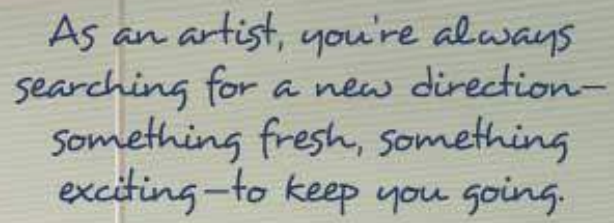 As an artist, you're always
searching for a new direction—
something fresh, something
exciting—to keep you going.